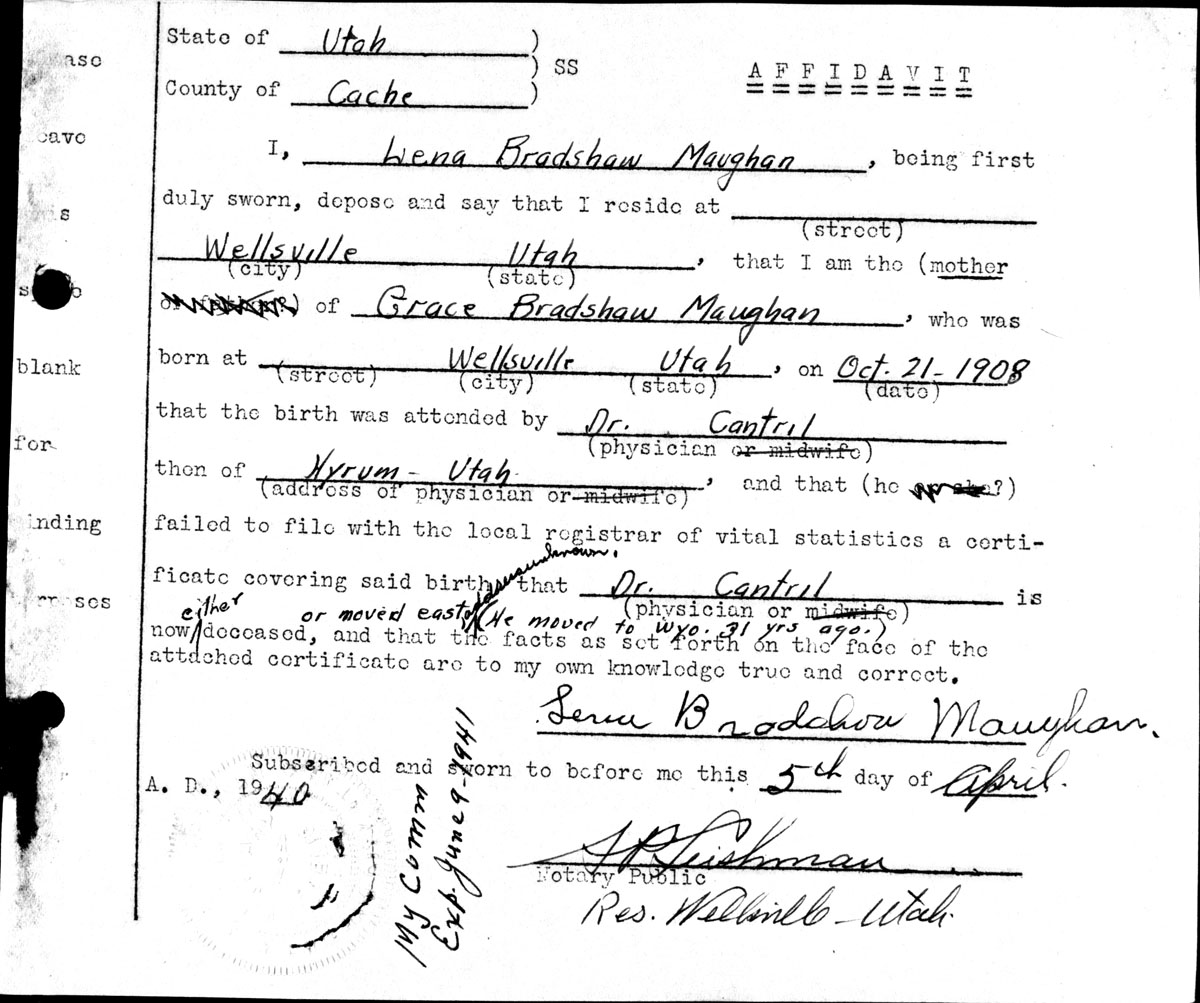 State of Utah )
) SS
County of Cache )
AFFIDAVIT
I, Lena Bradshaw Maughan, being first
duly sworn, depose and say that I reside at
(street)
Wellsville Utah, that I am the (mother
(city) (state)
) of Grace Bradshaw Maughan, who was
born at Wellsville Utah, on Oct. 21-1908
(street) (city) (state) (date)
that the birth was attended by Dr. Cantril
(physician or midwife)
then of Hyrum- Utah, and that (he or she?)
(address of physician or midwife)
failed to file with the local registrar of vital statistics a certi-
unknown.
ficate covering said birth that Dr. Cantril is
(physician or midwife)
either or moved east (He moved to Wyo. 31 yrs ago.)
now deceased, and that the facts as set forth on the face of the
attached certificate are to my own knowledge true and correct.
Lena Bradshaw Maughan.
Subscribed and sworn to before me this 5th day of April.
A. D., 1940
Notary Public
Res. Wellsville - Utah
My Comm
Exp. June 9-1941
blank
for